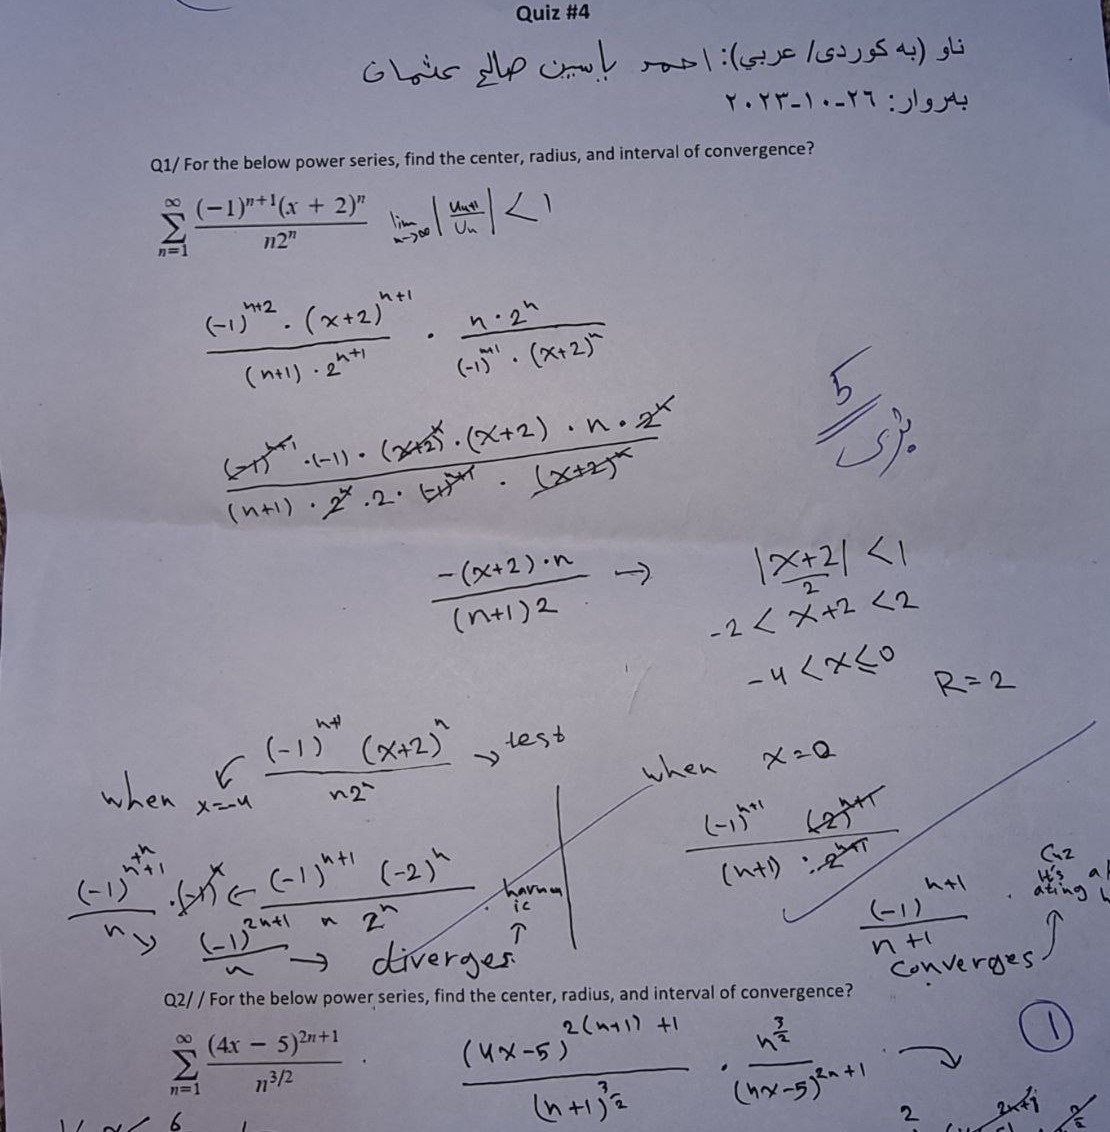 Quiz #4
ناو (به کوردی/ عربي): احمد یاسین صالح عثمان
بەروار: ٢٦-١٠-٢٠٢٣
Q1/ For the below power series, find the center, radius, and interval of convergence?
∑_{n=1}^{∞} (-1)^{n+1}(x + 2)^n / n2^n    lim_{n→∞} |U_{n+1}/U_n| < 1
(-1)^{n+2} · (x+2)^{n+1} / (n+1) · 2^{n+1} · n · 2^n / (-1)^{n+1} · (x+2)^n
5
(-1)^{n+1} · (-1) · (x+2)^n · (x+2) · n · 2^n / (n+1) · 2^n · 2 · (-1)^{n+1} · (x+2)^n
-(x+2) · n / (n+1) 2 → |x+2 / 2| < 1
-2 < x+2 < 2
-4 < x ≤ 0    R = 2
when x=-4 ↙ (-1)^{n+1} (x+2)^n / n2^n → test
(-1)^{n+n+1} / n · (-1)^n ← (-1)^{n+1} (-2)^n / n 2^n
↘ (-1)^{2n+1} / n → diverges ↑ harmonic
when x=0
(-1)^{n+1} (2)^{n+1} / (n+1) · 2^{n+1}
(-1)^{n+1} / n+1
converges
Cuz
it's a
ating
Q2// For the below power series, find the center, radius, and interval of convergence?
∑_{n=1}^{∞} (4x − 5)^{2n+1} / n^{3/2} (4x-5)^{2(n+1)+1} / (n+1)^{3/2} · n^{3/2} / (4x-5)^{2n+1} →
1